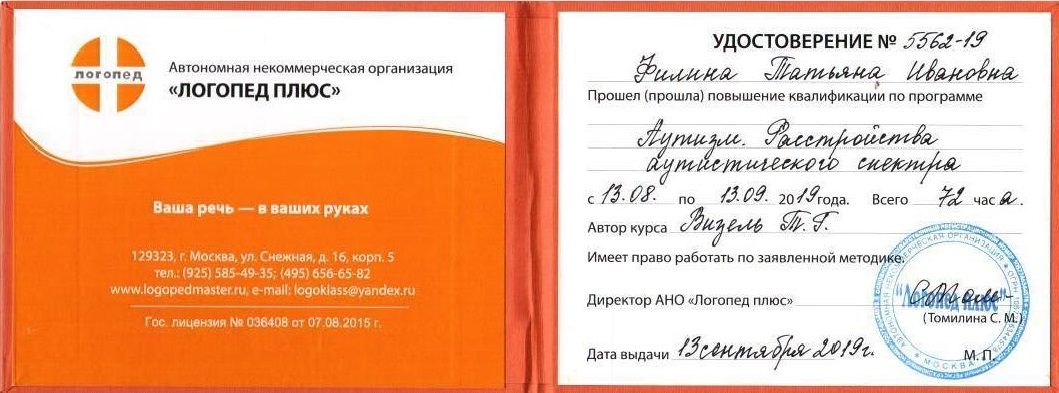 логопед
Автономная некоммерческая организация
«ЛОГОПЕД ПЛЮС»
Ваша речь — в ваших руках
129323, г. Москва, ул. Снежная, д. 16, корп. 5
тел.: (925) 585-49-35; (495) 656-65-82
www.logopedmaster.ru, e-mail: logoklass@yandex.ru
Гос. лицензия № 036408 от 07.08.2015 г.
УДОСТОВЕРЕНИЕ № 5562-19
Филина Татьяна Ивановна
Прошел (прошла) повышение квалификации по программе
Аутизм. Расстройства
аутистического спектра
с 13.08. по 13.09. 2019 года. Всего 72 час а.
Автор курса Визель Т.Г.
Имеет право работать по заявленной методике.
Директор АНО «Логопед плюс»
(Томилина С. М.)
Дата выдачи 13 сентября 2019г. М. П.
АВТОНОМНАЯ НЕКОММЕРЧЕСКАЯ ОРГАНИЗАЦИЯ
"Логопед плюс"
МОСКВА